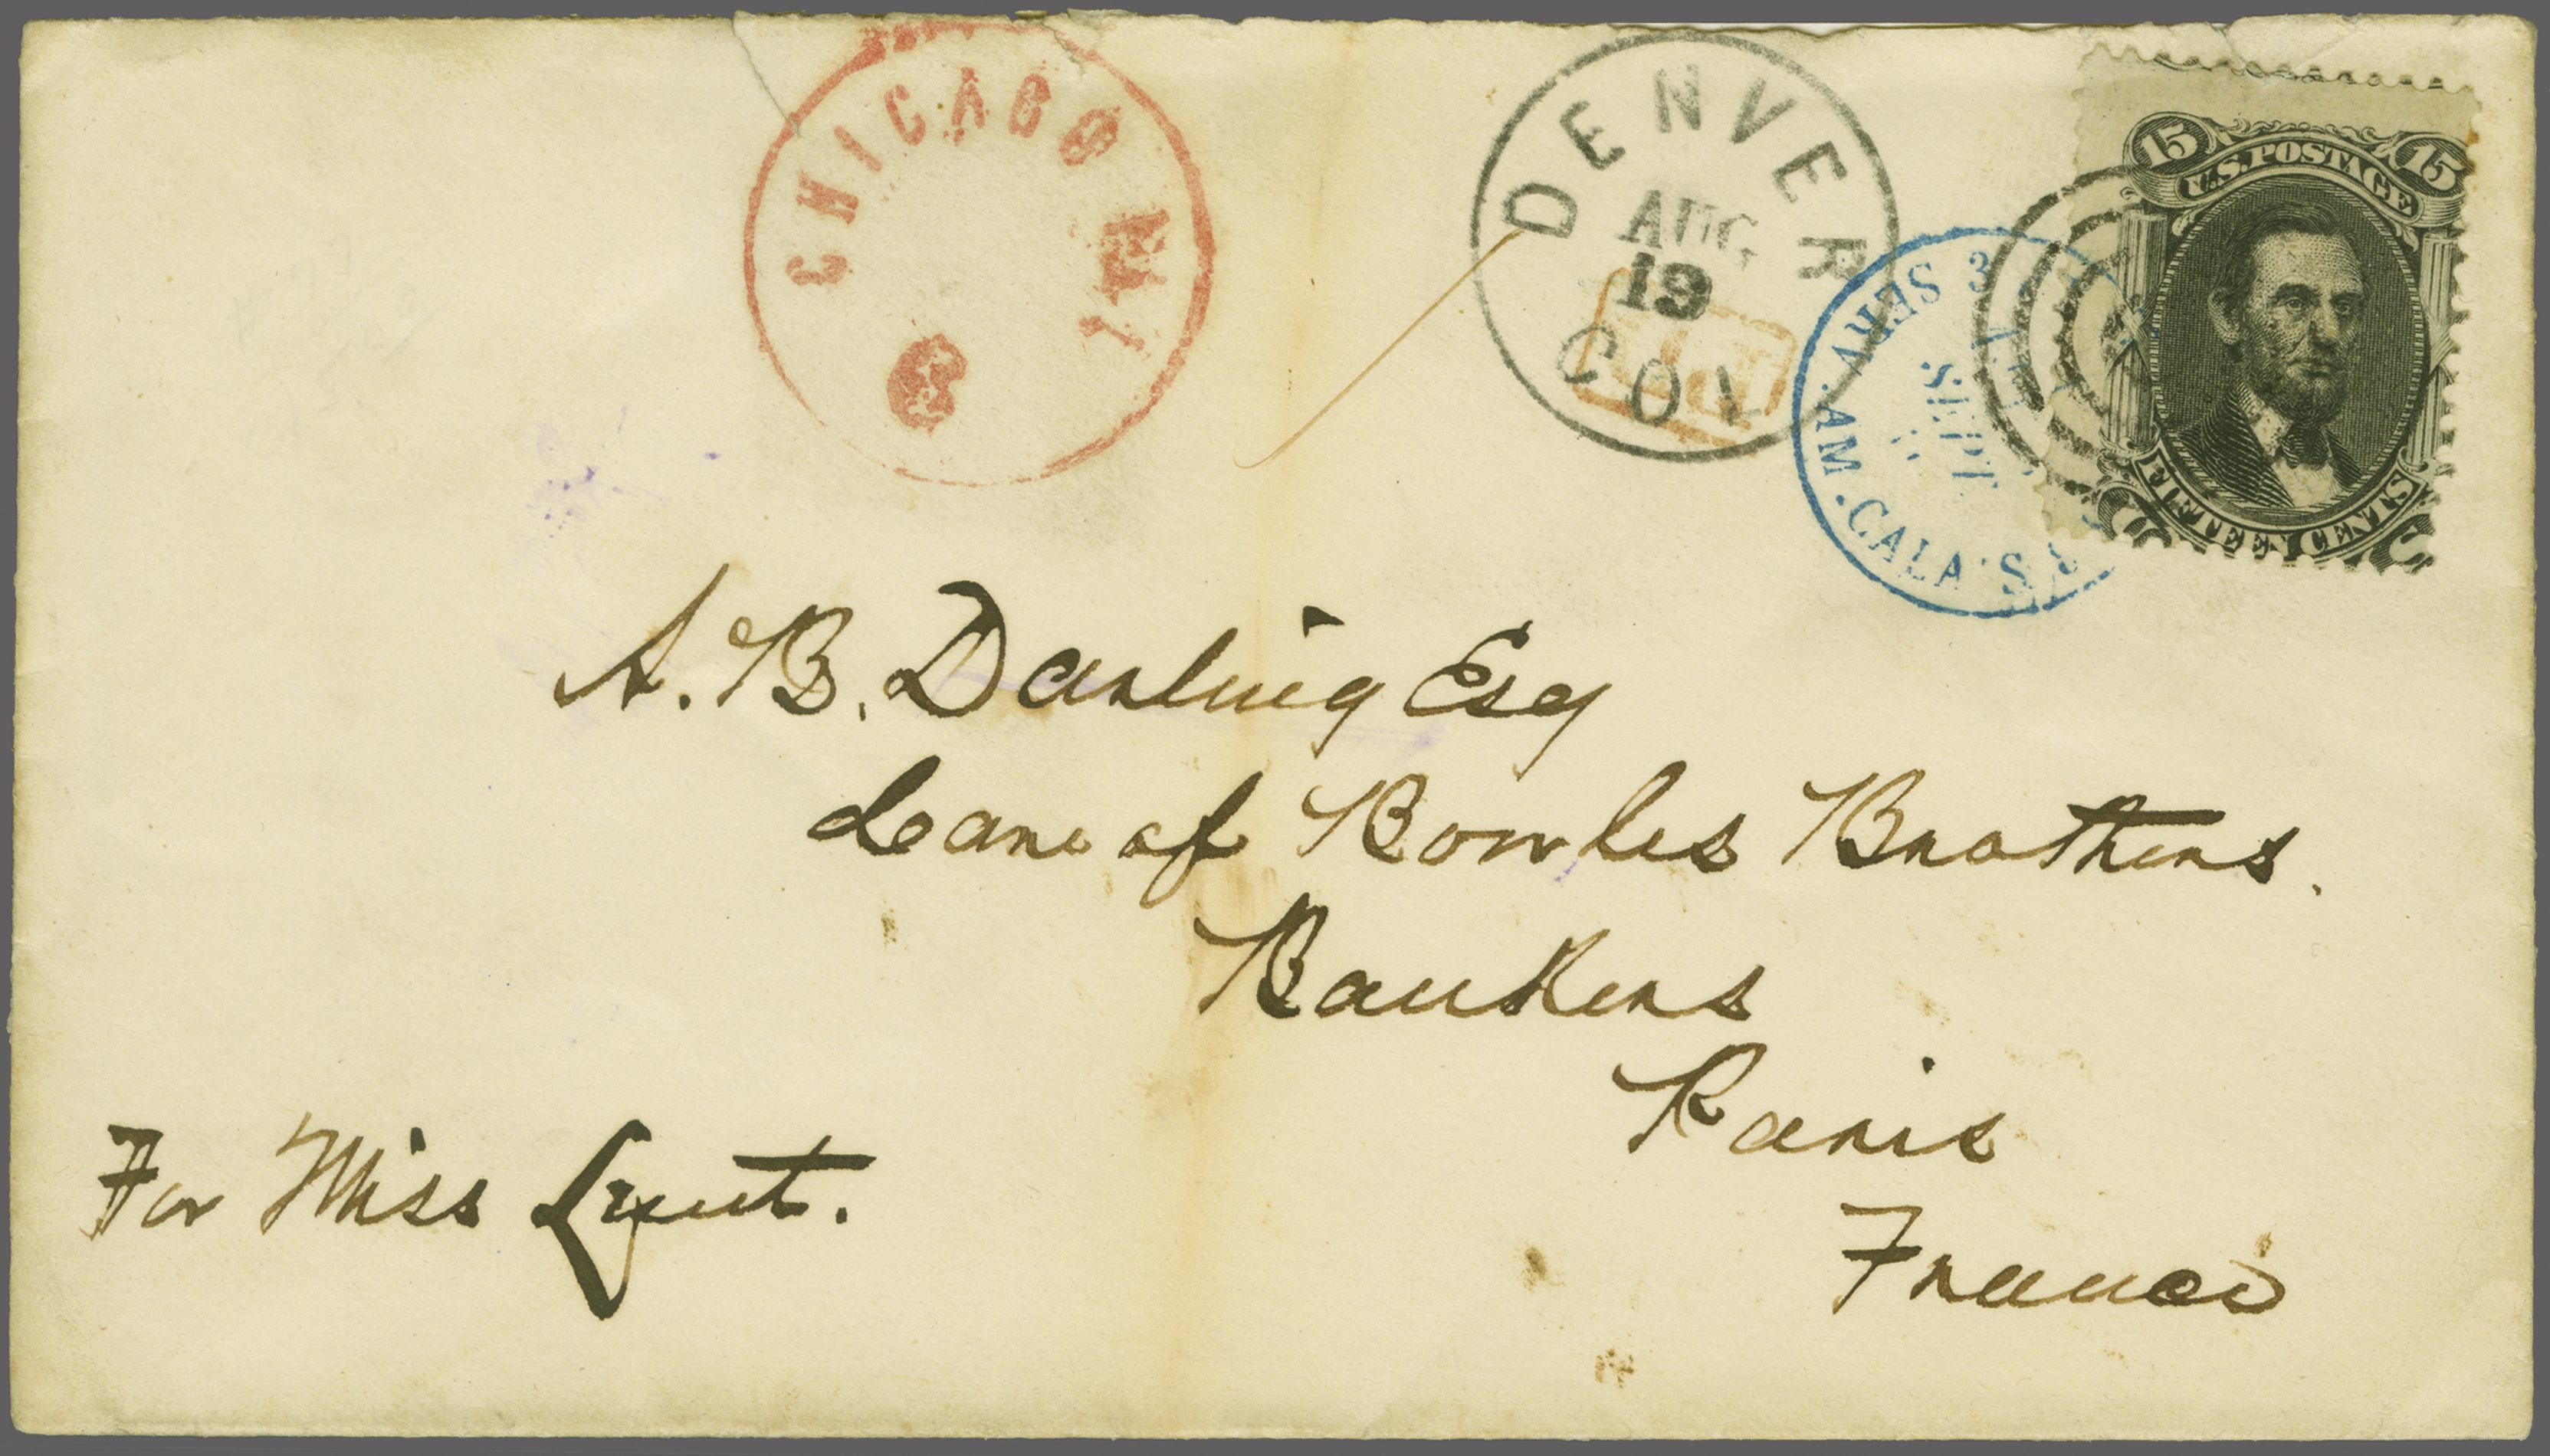 CHICAGO
6
DENVER
AUG
19
COL
15 U.S. POSTAGE 15
FIFTEEN CENTS
U S
SERV. AM. CALAIS
3
SEPT
A. B. Darling Esq
Care of Bowles Brothers.
Bankers
Paris
France
For Miss